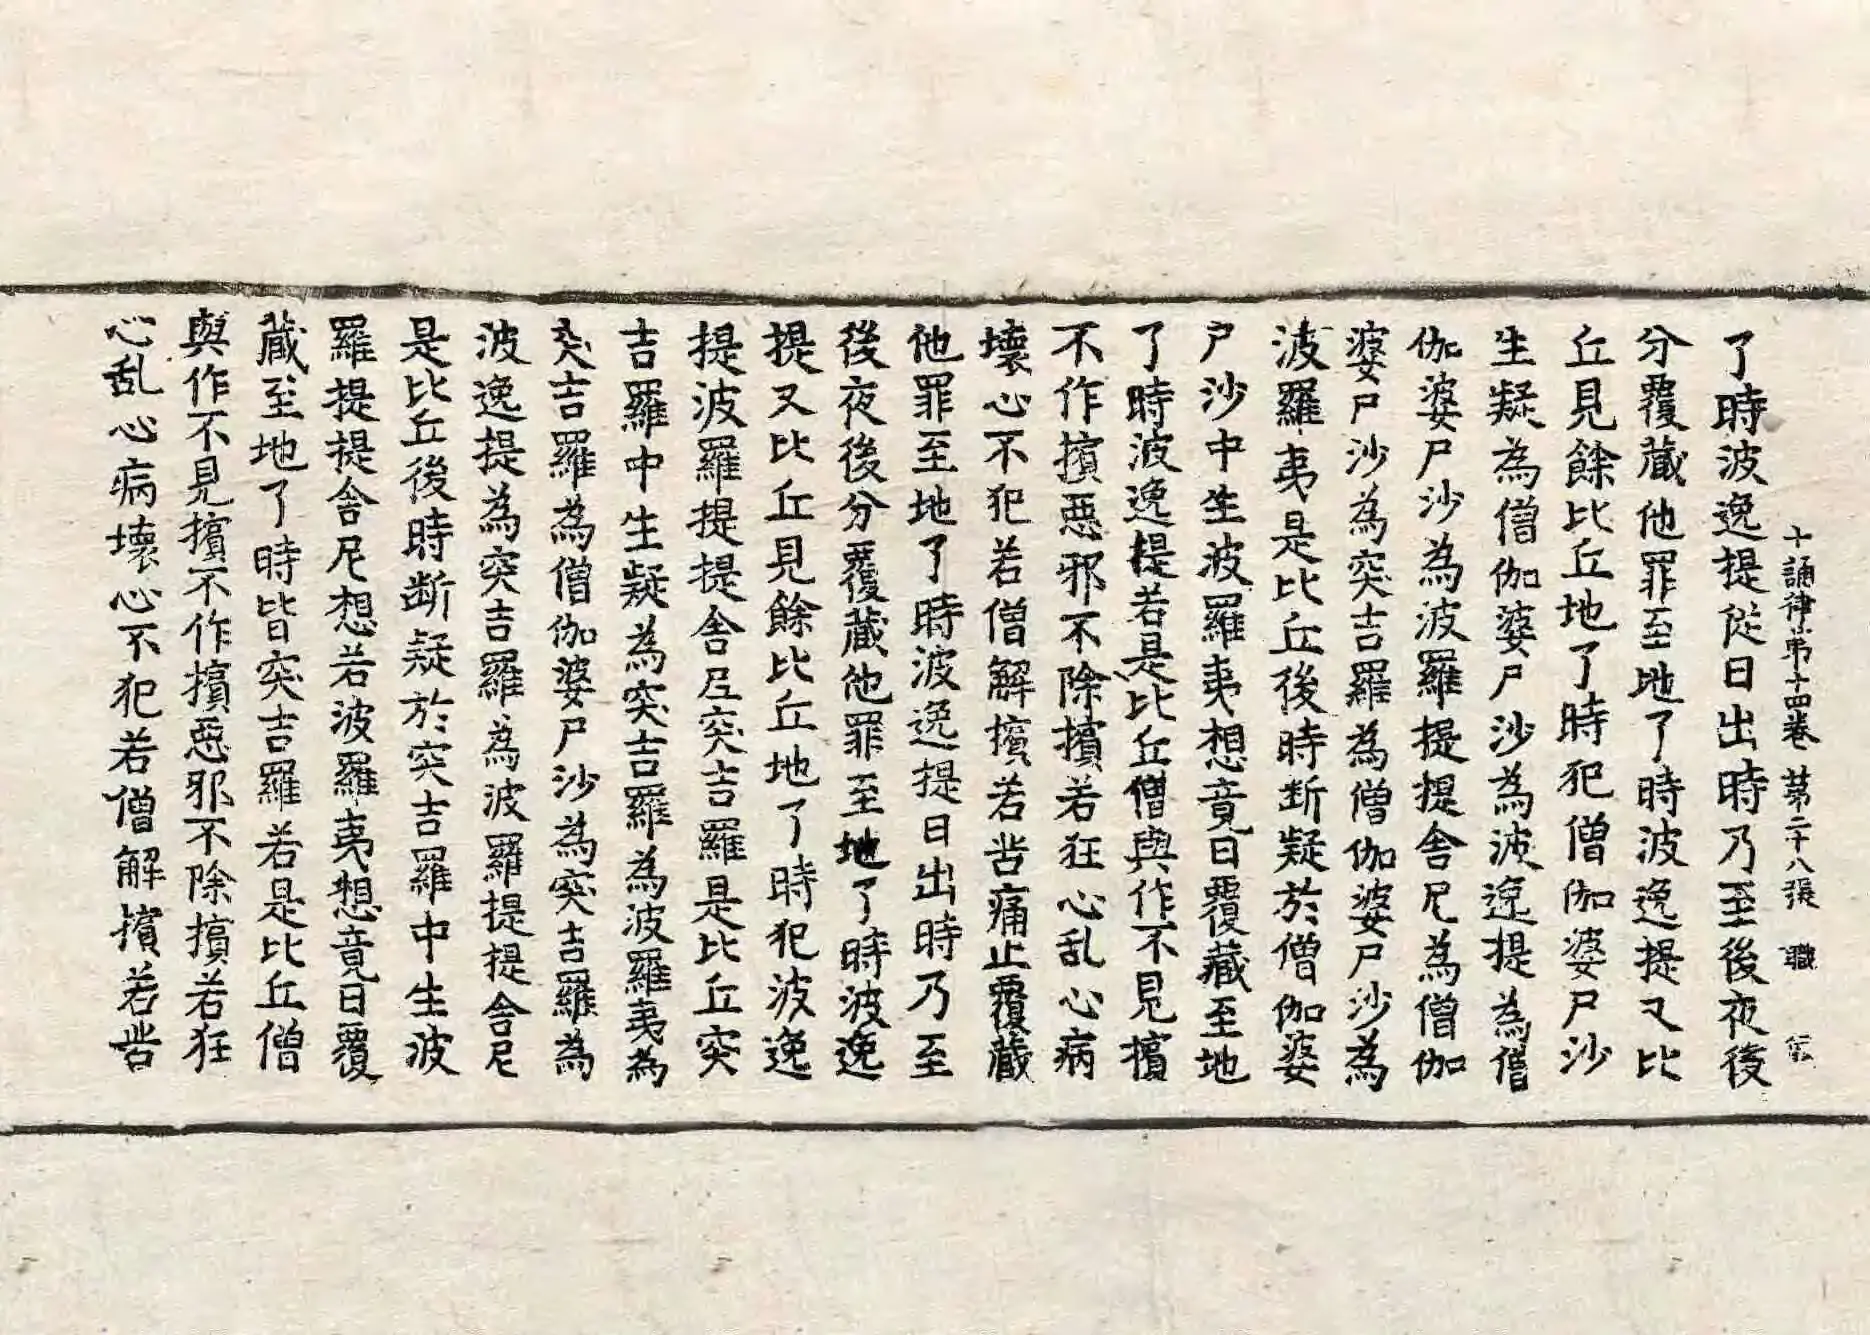 十誦律第十四卷 第二十八張 職
了時波逸提從日出時乃至後夜後
分覆藏他罪至地了時波逸提又比
丘見餘比丘地了時犯僧伽婆尸沙
生疑為僧伽婆尸沙為波逸提為僧
伽婆尸沙為波羅提提舍尼為僧伽
婆尸沙為突吉羅為僧伽婆尸沙為
波羅夷是比丘後時断疑於僧伽婆
尸沙中生波羅夷想竟日覆藏至地
了時波逸提若是比丘僧與作不見擯
不作擯惡邪不除擯若狂心乱心病
壞心不犯若僧解擯若苦痛止覆藏
他罪至地了時波逸提日出時乃至
後夜後分覆藏他罪至地了時波逸
提又比丘見餘比丘地了時犯波逸
提波羅提提舍尼突吉羅是比丘突
吉羅中生疑為突吉羅為波羅夷為
突吉羅為僧伽婆尸沙為突吉羅為
波逸提為突吉羅為波羅提提舍尼
是比丘後時断疑於突吉羅中生波
羅提提舍尼想若波羅夷想竟日覆
藏至地了時皆突吉羅若是比丘僧
與作不見擯不作擯惡邪不除擯若狂
心乱心病壞心不犯若僧解擯若苦